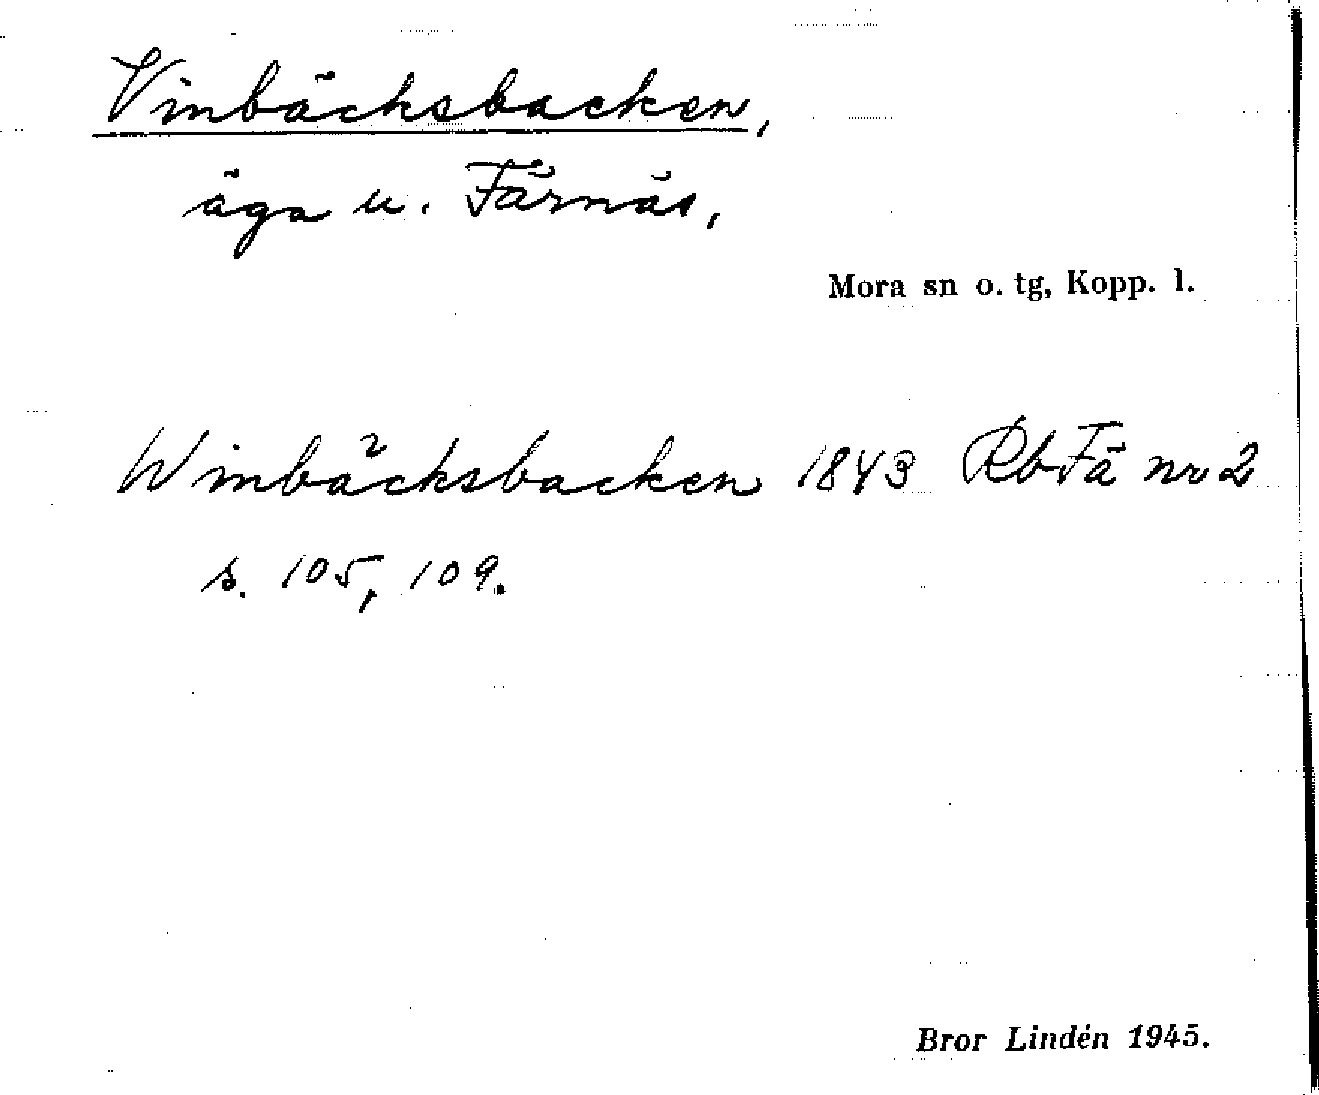 Vinbäcksbacken,
äga u. Färnäs,
Mora sn o. tg, Kopp. l.
Winbäcksbacken 1843 RbFä nr 2
s. 105, 109.
Bror Lindén 1945.